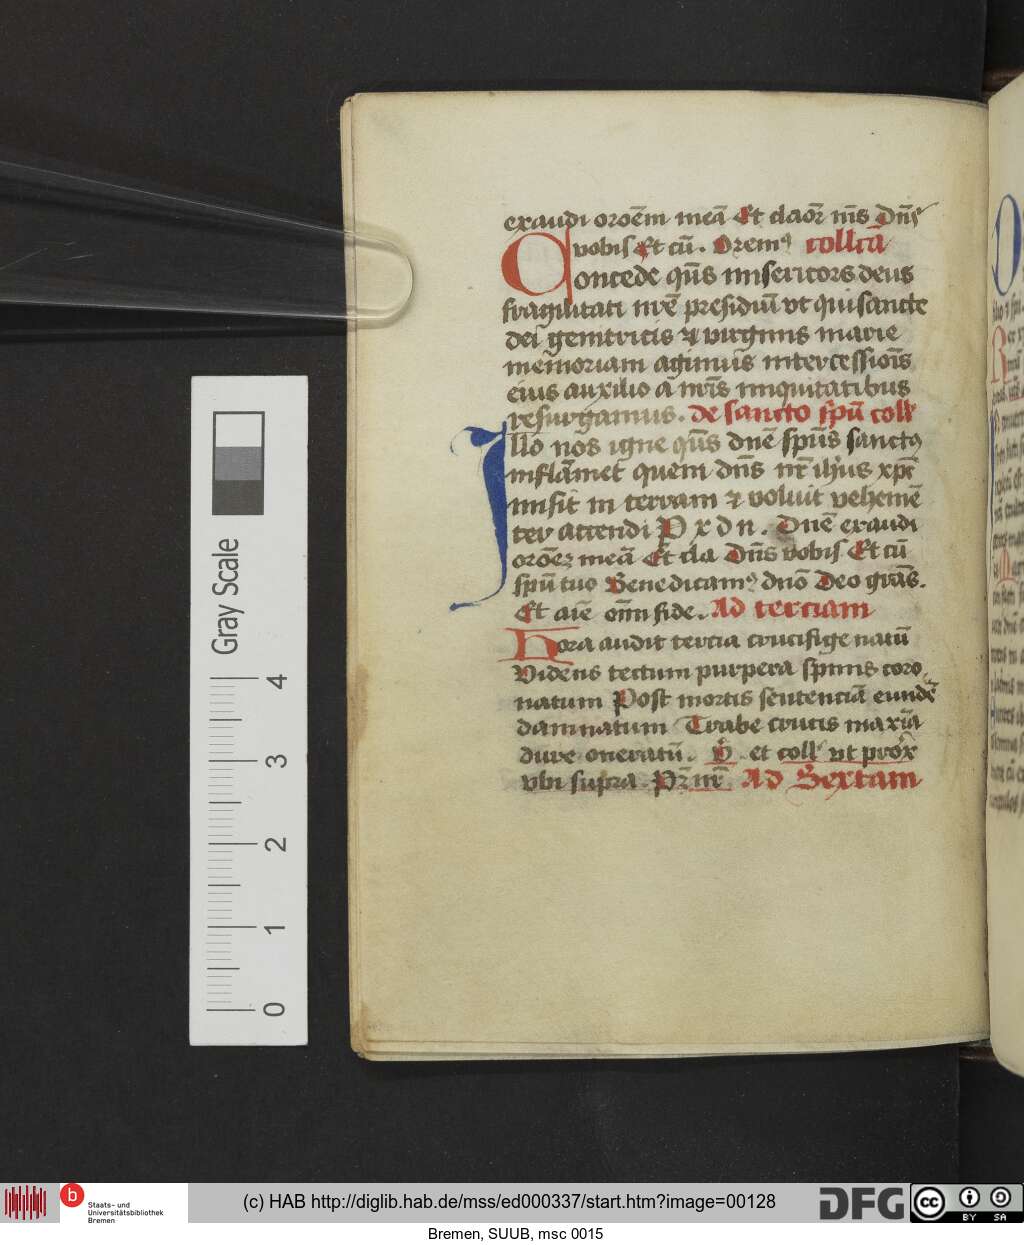 exaudi oroēm meā Et claōr m̄s Dn̄s
vobis Et cū. Oremꝰ collcā
Concede qūs misericors deus
fragilitati nr̄e presidiū vt qui sancte
dei genitricis ⁊ virginis marie
memoriam agimus intercessiōis
eius auxilio a nr̄is iniquitatibus
resurgamus. de sancto spū coll
Illo nos igne qūs dn̄e spūs sanctꝯ
inflāmet quem dn̄s nr̄ ihūs xp̄c
misit in terram ⁊ voluit vehemē
ter accendi P x d n. Dn̄e exaudi
oroēz meā Et cla Dn̄s vobis Et cū
spū tuo Benedicamꝰ dn̄o Deo grās.
Et aīe om̄ fide. Ad terciam
Hora audit tercia crucifige natū
Videns tectum purpera spinis coro
natum Post mortis sentenciā eundē
damnatum Trabe crucis maxīa
dure oneratū. V̊ et coll vt prōx
vbi supra. Pr̄ nr̄ Ad Sextam
Gray Scale
4
3
2
1
0
b
Staats- und
Universitätsbibliothek
Bremen
(c) HAB http://diglib.hab.de/mss/ed000337/start.htm?image=00128
DFG
cc
BY SA
Bremen, SUUB, msc 0015